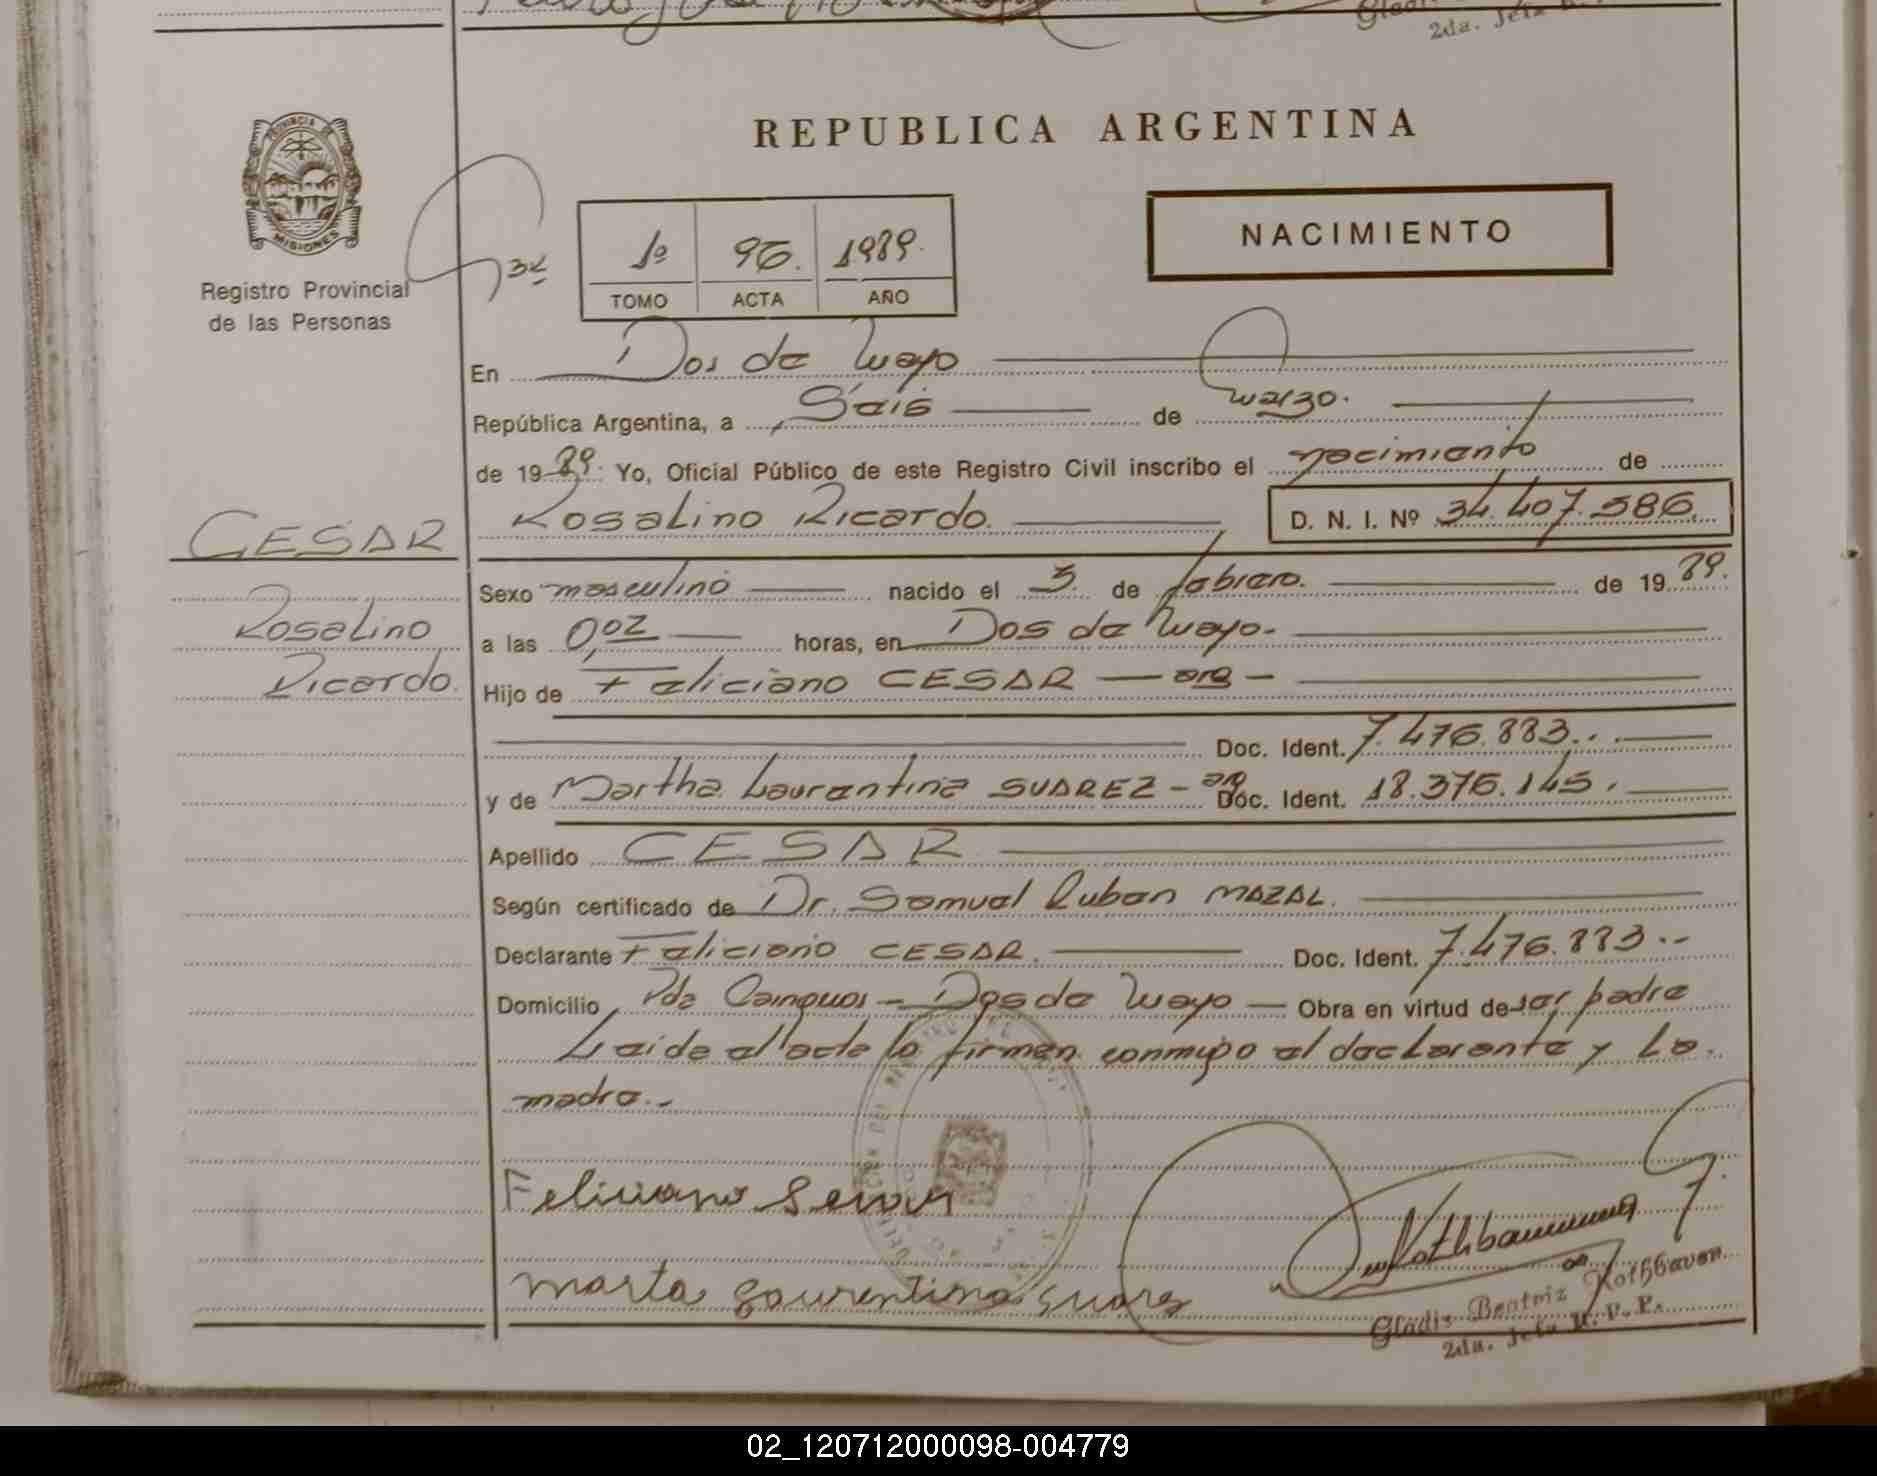 2da. Jefa
REPUBLICA ARGENTINA
PROVINCIA DE
MISIONES
Registro Provincial
de las Personas
1º 96. 1989.
TOMO ACTA AÑO
NACIMIENTO
En Dos de Mayo
República Argentina, a Seis de marzo.
de 1989. Yo, Oficial Público de este Registro Civil inscribo el nacimiento de
Rosalino Ricardo. D. N. I. Nº 34.407.586.
CESAR
Rosalino
Ricardo.
Sexo masculino nacido el 3. de febrero. de 1989.
a las 0,02 horas, en Dos de Mayo.-
Hijo de Feliciano CESAR — arg —
Doc. Ident. 7.476.883..
y de Martha Laurentina SUAREZ - arg Doc. Ident. 18.376.145.
Apellido CESAR
Según certificado de Dr. Samuel Ruben MAZAL.
Declarante Feliciano CESAR. Doc. Ident. 7.476.883.--
Domicilio Pda Dos de Mayo — Obra en virtud de ser padre
Leida el acta lo firman conmigo el declarante y la
madre.-
Feliciano
marta Laurentina Suarez
Gladis Beatriz Rothbaven
2da. Jefa R. P. P.
02_120712000098-004779